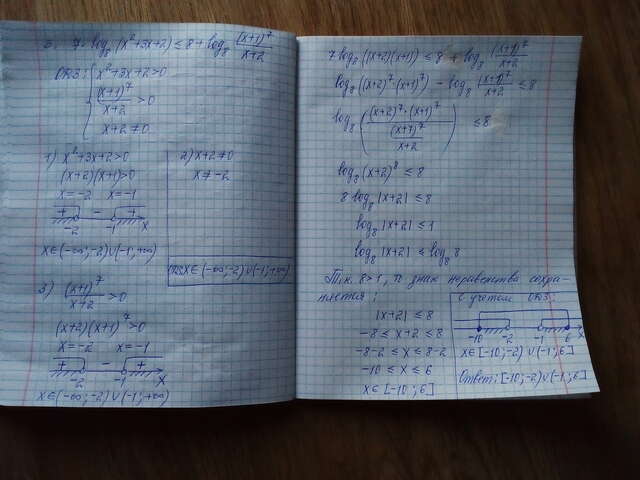 7·log₈(x²+3x+2) ≤ 8 + log₈ (x+1)⁷/(x+2)
ОДЗ: { x²+3x+2>0
(x+1)⁷/(x+2) > 0
x+2 ≠ 0
1) x²+3x+2>0
(x+2)(x+1)>0
x=-2 x=-1
+ - +
-2 -1 x
x∈(-∞;-2)∪(-1;+∞)
2) x+2 ≠ 0
x ≠ -2
ОДЗ: x∈(-∞;-2)∪(-1;+∞)
3) (x+1)⁷/(x+2) > 0
(x+2)(x+1)⁷>0
x=-2 x=-1
+ - +
-2 -1 x
x∈(-∞;-2)∪(-1;+∞)
7 log₈((x+2)(x+1)) ≤ 8 + log₈ (x+1)⁷/(x+2)
log₈((x+2)⁷·(x+1)⁷) - log₈ (x+1)⁷/(x+2) ≤ 8
log₈( ((x+2)⁷·(x+1)⁷) / ((x+1)⁷/(x+2)) ) ≤ 8
log₈(x+2)⁸ ≤ 8
8 log₈|x+2| ≤ 8
log₈|x+2| ≤ 1
log₈|x+2| ≤ log₈8
Т.к. 8>1, то знак неравенства сохра-
няется:
|x+2| ≤ 8
-8 ≤ x+2 ≤ 8
-8-2 ≤ x ≤ 8-2
-10 ≤ x ≤ 6
x∈[-10;6]
С учетом ОДЗ:
-10 -2 -1 6 x
x∈[-10;-2)∪(-1;6]
Ответ: [-10;-2)∪(-1;6]